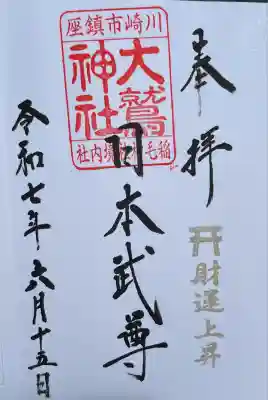 奉拝
財運上昇
川崎市鎮座
大鷲神社
日本武尊
令和七年六月十五日